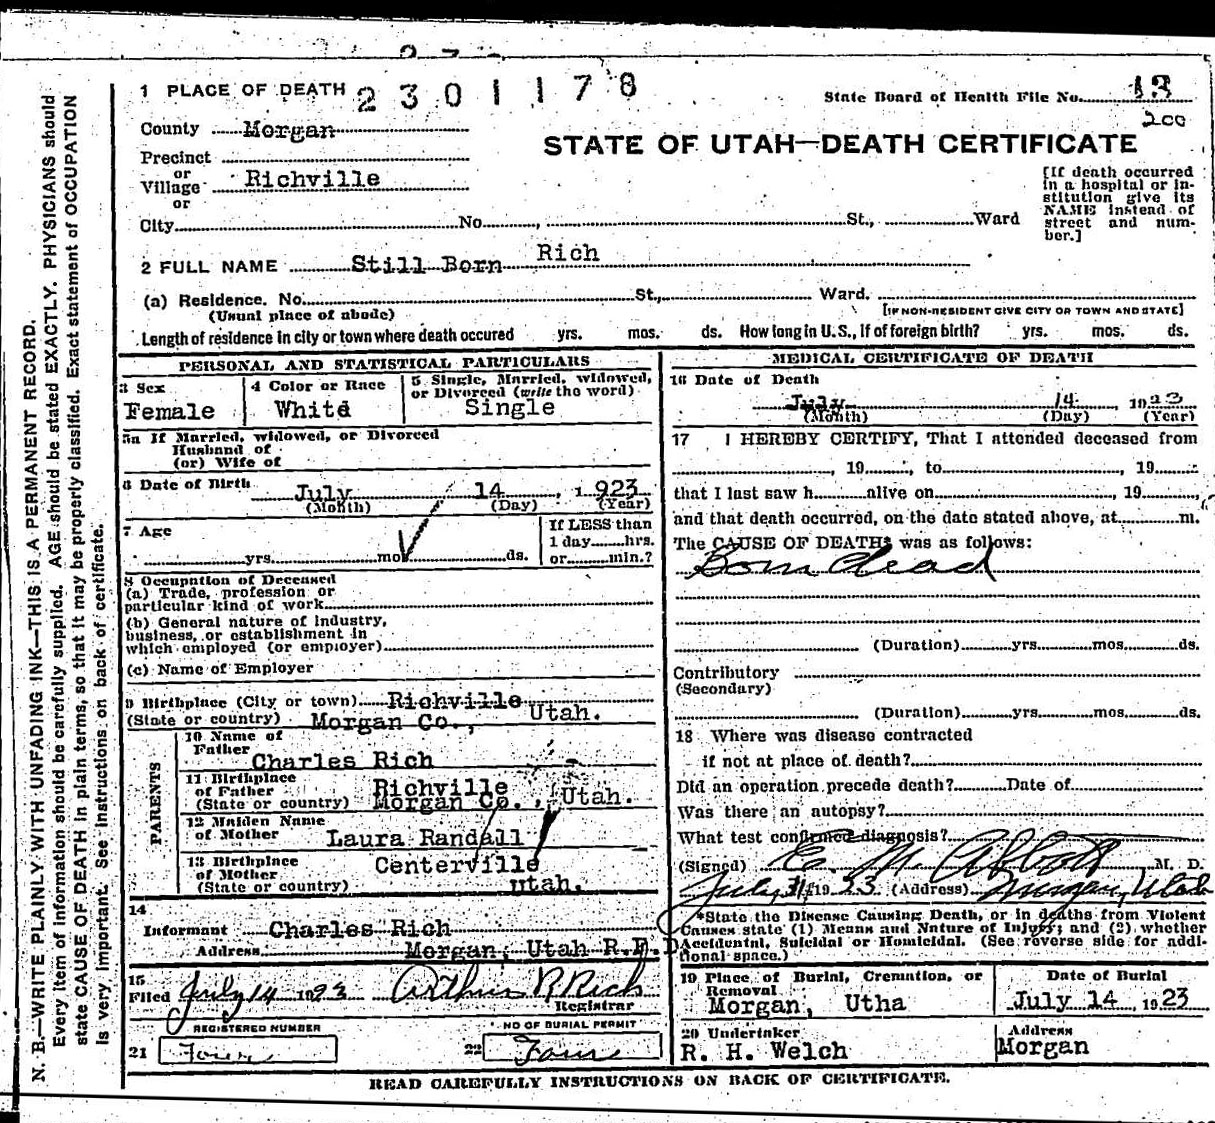 N. B.—WRITE PLAINLY WITH UNFADING INK—THIS IS A PERMANENT RECORD.
Every item of information should be carefully supplied. AGE should be stated EXACTLY. PHYSICIANS should
state CAUSE OF DEATH in plain terms, so that it may be properly classified. Exact statement of OCCUPATION
is very important. See instructions on back of certificate.
1 PLACE OF DEATH 2301178
State Board of Health File No. 13
200
County Morgan
STATE OF UTAH—DEATH CERTIFICATE
Precinct
or
Village Richville
or
City No. , St., Ward
[If death occurred
in a hospital or in-
stitution give its
NAME instead of
street and num-
ber.]
2 FULL NAME Still Born Rich
(a) Residence. No. St., Ward.
(Usual place of abode) [IF NON-RESIDENT GIVE CITY OR TOWN AND STATE]
Length of residence in city or town where death occured yrs. mos. ds. How long in U. S., if of foreign birth? yrs. mos. ds.
PERSONAL AND STATISTICAL PARTICULARS
3 Sex
Female
4 Color or Race
White
5 Single, Married, widowed,
or Divorced (write the word)
Single
5a If Married, widowed, or Divorced
Husband of
(or) Wife of
6 Date of Birth July 14, 1923
(Month) (Day) (Year)
7 Age
yrs. mos. ds.
If LESS than
1 day hrs.
or min.?
8 Occupation of Deceased
(a) Trade, profession or
particular kind of work
(b) General nature of Industry,
business, or establishment in
which employed (or employer)
(c) Name of Employer
9 Birthplace (City or town) Richville
(State or country) Morgan Co., Utah.
PARENTS
10 Name of
Father
Charles Rich
11 Birthplace
of Father
(State or country)
Richville
Morgan Co., Utah.
12 Maiden Name
of Mother
Laura Randall
13 Birthplace
of Mother
(State or country)
Centerville
Utah.
14
Informant Charles Rich
Address Morgan, Utah R.F.D
15
Filed July 14 1923 Arthur R Rich
Registrar
REGISTERED NUMBER
21 Four
NO OF BURIAL PERMIT
22 Four
MEDICAL CERTIFICATE OF DEATH
16 Date of Death
July 14, 1923
(Month) (Day) (Year)
17 I HEREBY CERTIFY, That I attended deceased from
, 19 , to , 19
that I last saw h alive on , 19 ,
and that death occurred, on the date stated above, at m.
The CAUSE OF DEATH* was as follows:
Born dead
(Duration) yrs. mos. ds.
Contributory
(Secondary)
(Duration) yrs. mos. ds.
18 Where was disease contracted
if not at place of death?
Did an operation precede death? Date of
Was there an autopsy?
What test confirmed diagnosis?
(Signed) C. M. Abbott M. D.
July 31, 1923 (Address) Morgan, Utah
*State the Disease Causing Death, or in deaths from Violent
Causes state (1) Means and Nature of Injury; and (2) whether
Accidental, Suicidal or Homicidal. (See reverse side for addi-
tional space.)
19 Place of Burial, Cremation, or
Removal
Morgan, Utha
Date of Burial
July 14, 1923
20 Undertaker
R. H. Welch
Address
Morgan
READ CAREFULLY INSTRUCTIONS ON BACK OF CERTIFICATE.